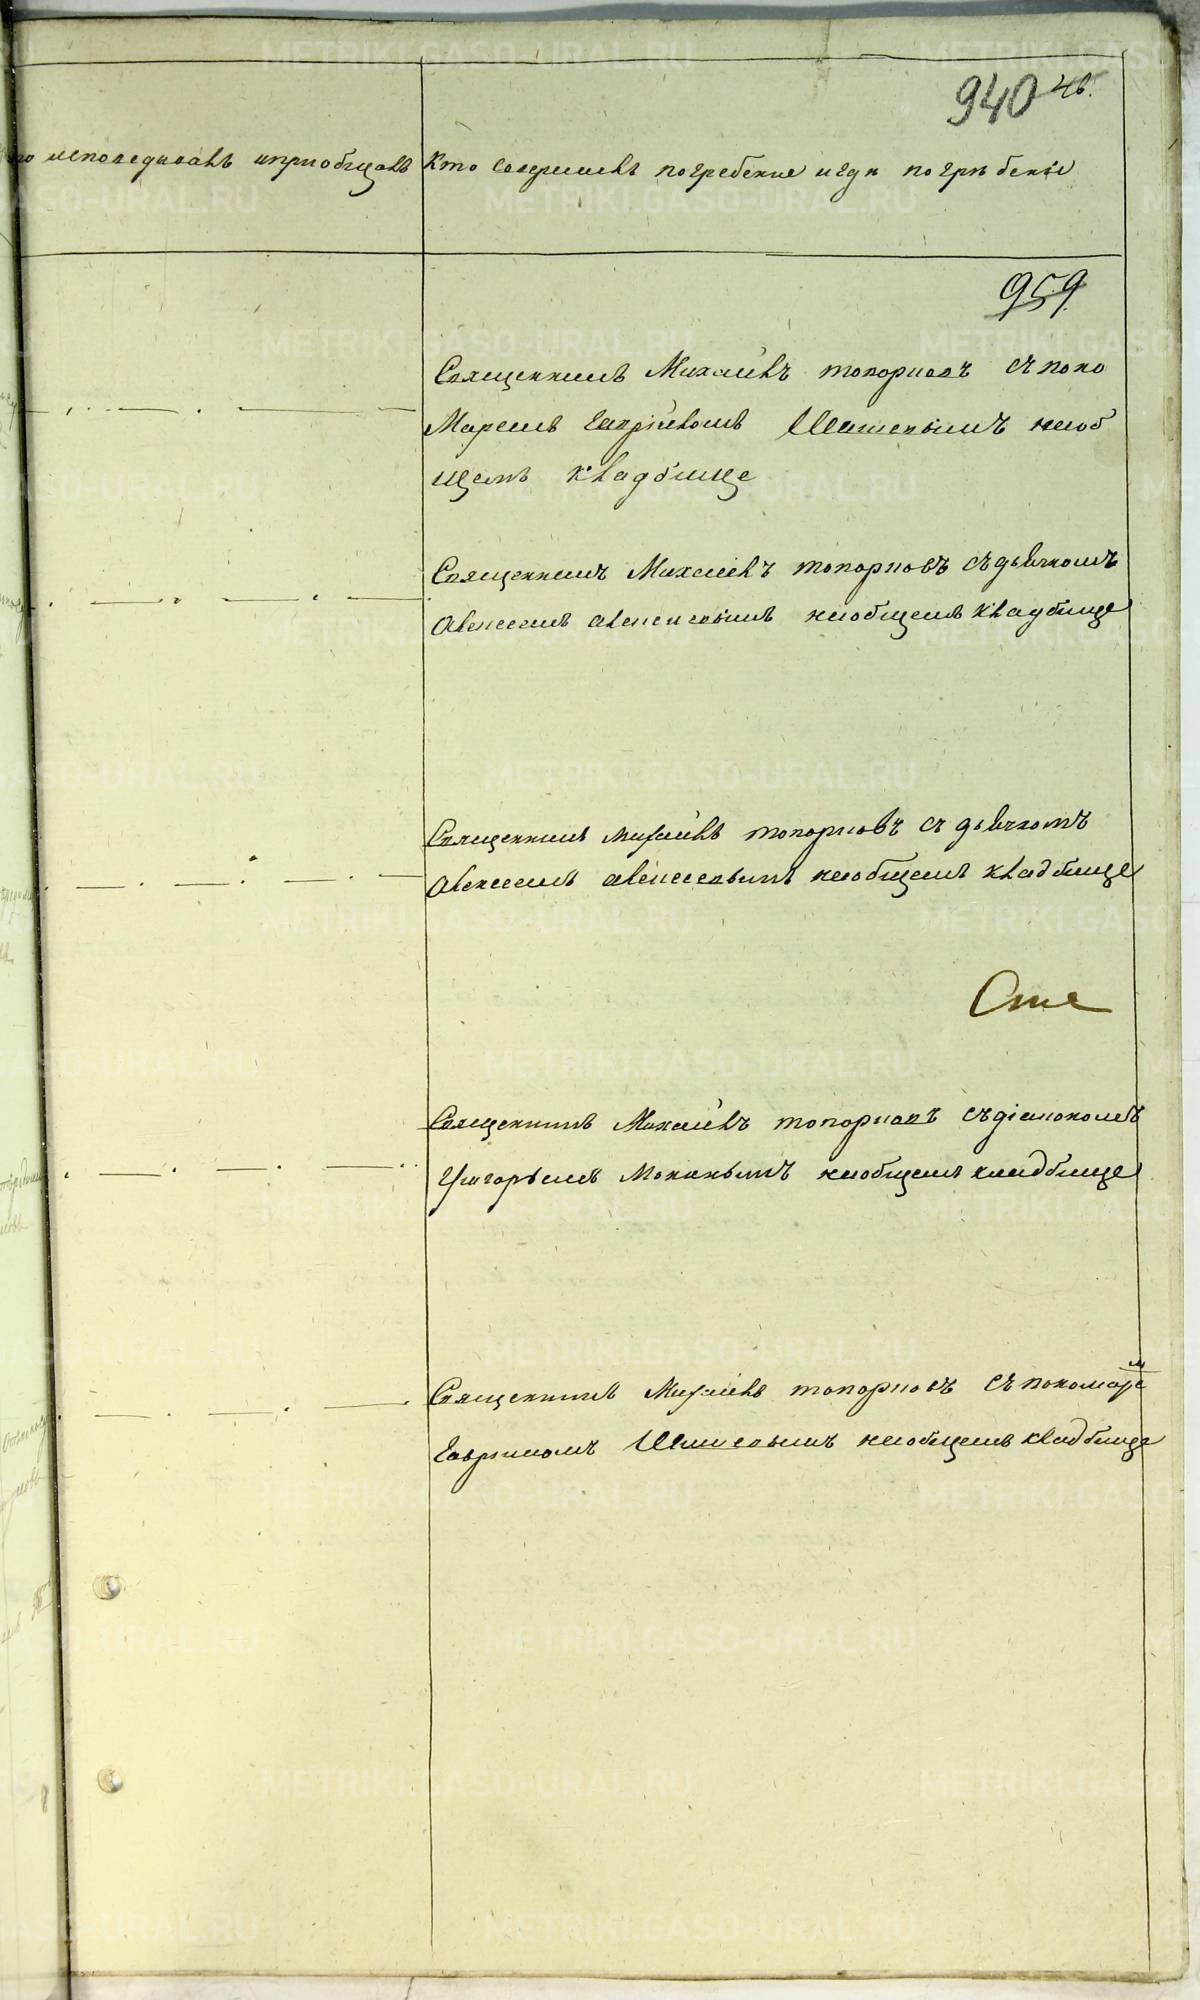 940 46.
исповедывалъ иприобщалъ
Кто совершалъ погребение игдѣ погрѣбены
959
Священникъ Михаилъ топорковъ съ поно
Маремъ Гавриломъ необ
щемъ кладбище
Священникъ Михаилъ топорковъ съдьячкомъ
Алексеемъ алексеевымъ наобщемъ кладбище
Священникъ михаилъ топорковъ съ дьячкомъ
Алексеемъ алексеевымъ наобщемъ кладбище
Священникъ Михаилъ топорковъ съдіакономъ
Григорьемъ наобщемъ кладбище
Священникъ Михаилъ топорковъ съ пономаре
м
Гавриломъ наобщемъ кладбище
METRIKI.GASO-URAL.RU